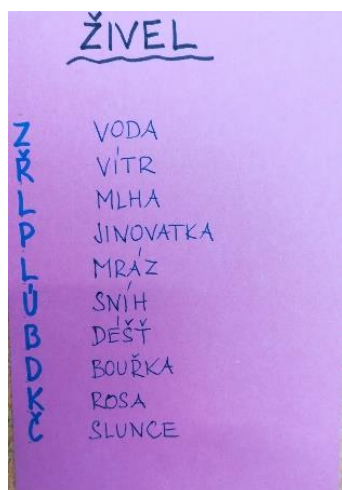 ŽIVEL
Z VODA
Ř VÍTR
L MLHA
P JINOVATKA
L MRÁZ
Ú SNÍH
B DÉŠŤ
D BOUŘKA
K ROSA
Č SLUNCE